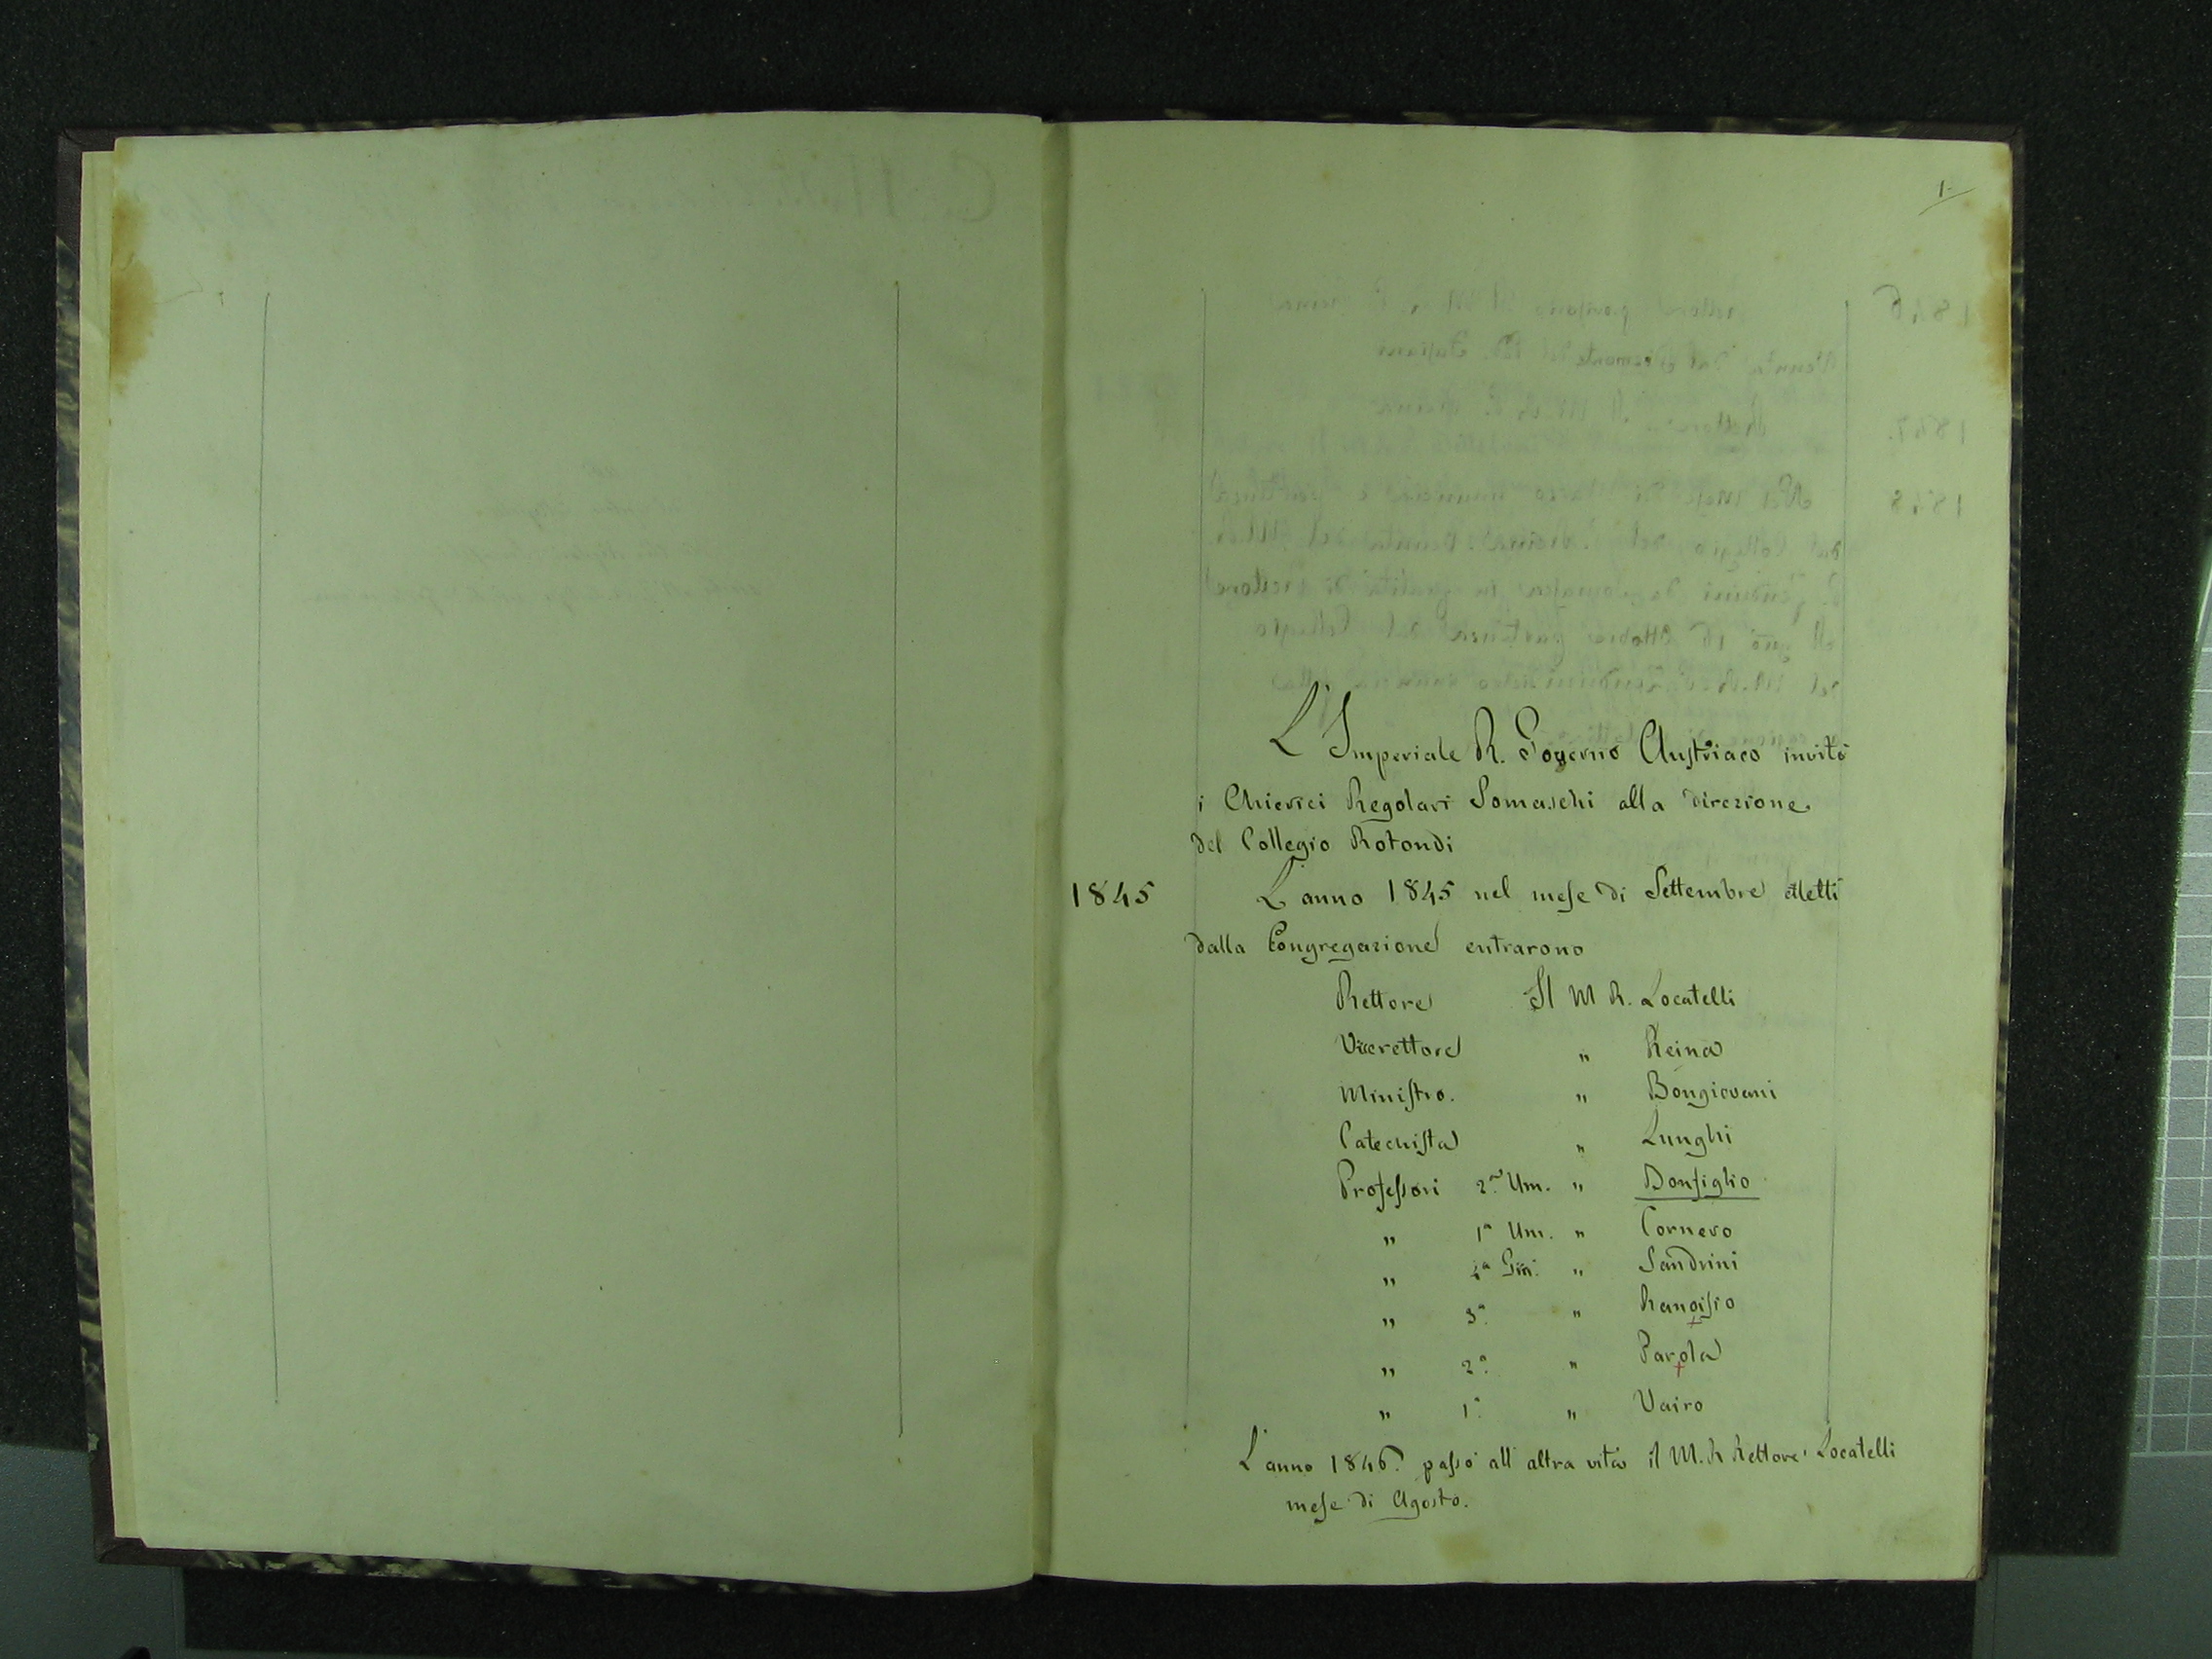 1.
L'Imperiale R. Governo Austriaco invitò
i Chierici Regolari Somaschi alla direzione
del Collegio Rotondi
1845 L'anno 1845 nel mese di Settembre eletti
dalla Congregazione entrarono
Rettore Il M R. Locatelli
Vicerettore " Reina
Ministro. " Bongiovani
Catechista " Lunghi
Professori 2ª Um. " Bonfiglio
" 1ª Um. " Cornero
" 4ª Gin. " Sandrini
" 3ª " Ranoisio
" 2ª " Parola
" 1ª " Vairo
L'anno 1846. passò all'altra vita il M. R Rettore Locatelli
mese di Agosto.